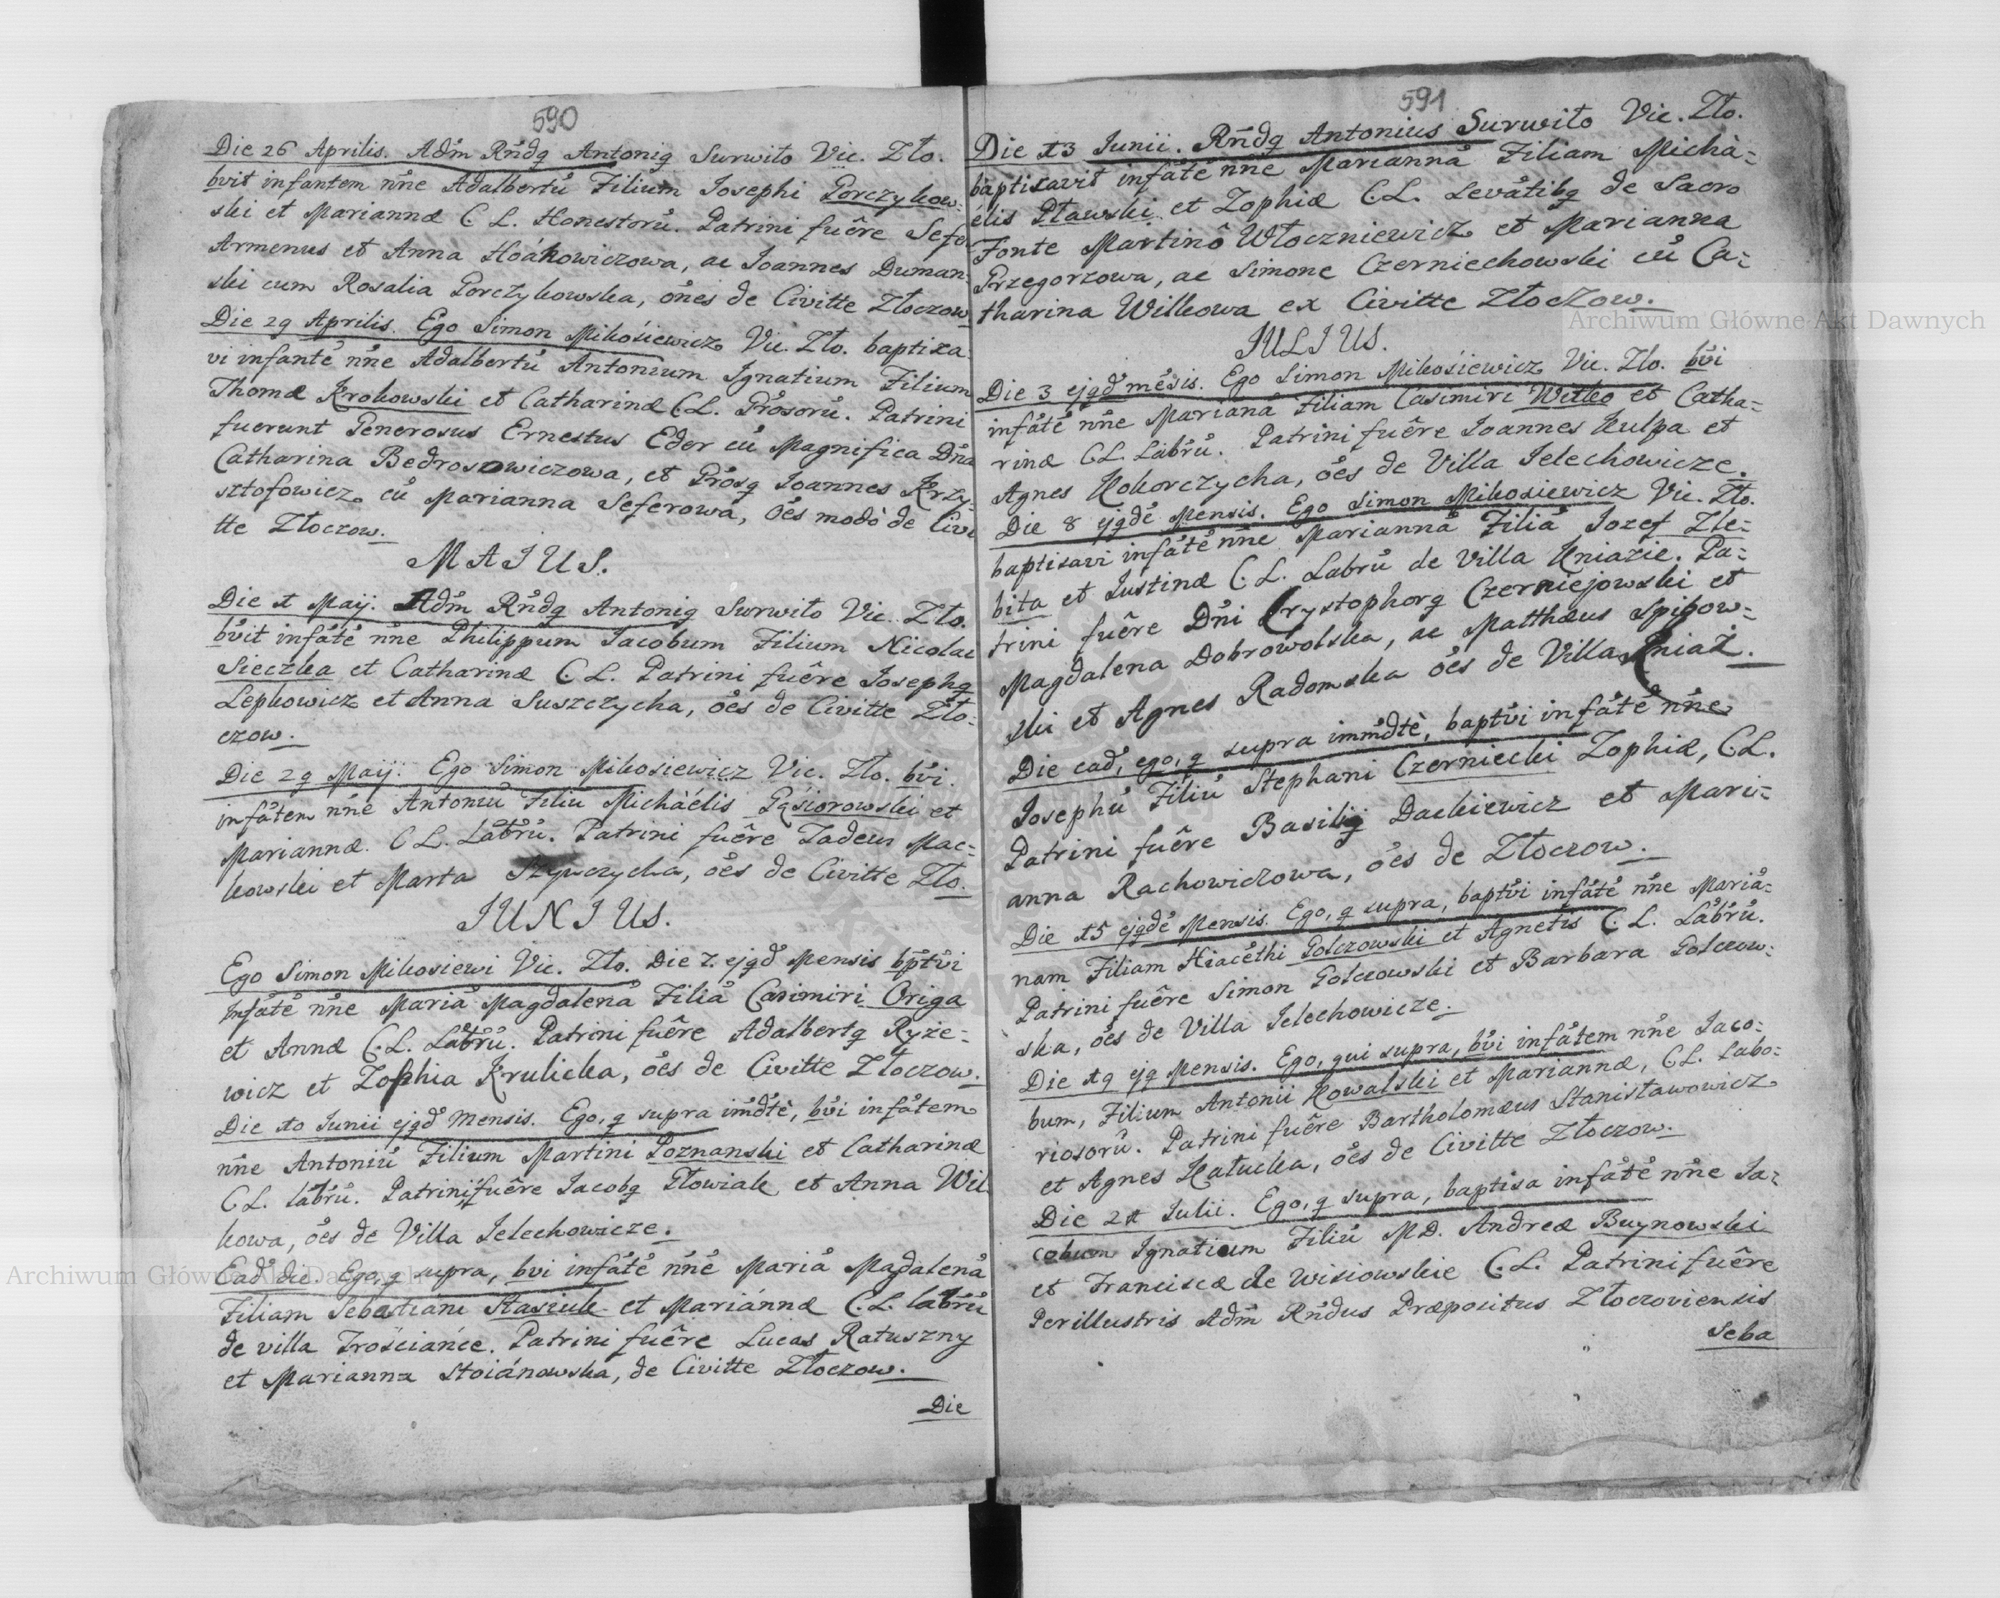 590
Die 26 Aprilis. Adm Rńdq Antoniq Surwiło Vic. Zło.
bvit infantem nńe Adalbertů Filium Josephi Gorczykow-
ski et Mariannæ C. L. Honestorů. Patrini fuêre Sefer
Armenus et Anna Hoákowiczowa, ac Joannes Duman-
ski cum Rosalia Gorczykowska, ońes de Civitte Złoczow.
Die 29 Aprilis. Ego Simon Mikósiewicz Vic. Zło. baptiza
vi infantē nńe Adalbertů Antonium Ignatium Filium
Thomæ Krokowski et Catharinæ C.L. Prósorů. Patrini
fuerunt Generosus Ernestus Eder ců Magnifica Dńa
Catharina Bedrosowiczowa, et Prósq Joannes Krzy-
sztofowicz ců Marianna Seferowa, óes modò de Civi
tte Złoczow.
MAJUS.
Die 1 Maij. Adm Rńdq Antoniq Surwiło Vic. Zło.
bvit infåtė nńe Philippum Jacobum Filium Nicolai
Sieczka et Catharinæ C.L. Patrini fuêre Josephq
Lepkowicz et Anna Suszczycha, óes de Civitte Zło-
czow.
Die 29 Maij. Ego Simon Mikosiewicz Vic. Zło. bvi
infåtem nńe Antoniů Filiu Michàélis Gąsiorowski et
Mariannæ. C L. Labrů. Patrini fuêre Tadeus Mac-
kowski et Marta Szywczycha, óes de Civitte Zło.
JUNJUS.
Ego Simon Mikosiewi Vic. Zło. Die 7. ejqd Mensis bptvi
Infåtė nńe Mariå Magdalenå Filiå Casimiri Origa
et Annæ C.L. Labrů. Patrini fuêre Adalbertq Ryże-
wicz et Zophia Krulicka, óes de Civitte Złoczow.
Die 10 Junii ejqd Mensis. Ego, q supra imdtè, bvi infåtem
nńe Antoniů Filium Martini Poznanski et Catharinæ
C L. labrů. Patrini fuêre Jacobq Głowiak et Anna Wil-
kowa, óes de Villa Jelechowicze.
Ead die. Ego, q supra, bvi infåtė nńė Mariå Magdalenå
Filiam Sebastiani Stasiuk et Mariánnæ C.L. labrů
de villa Trościańce. Patrini fuêre Lucas Ratuszny
et Marianna Stoiánowska, de Civitte Złoczow.
Die
591
Die 13 Junii. Rńdq Antonius Surwiło Vic. Zło.
baptizavit infåtė nńe Mariannå Filiam Michà-
élis Pławski et Zophiæ C.L. Levåtibq de Sacro
Fonte Martinô Włoczniewicz et Marianna
Przegorzowa, ac Simone Czerniechowski ců Ca-
tharina Wilkowa ex Civitte Złoczow.
JULIUS.
Die 3 ejqd mėsis. Ego Simon Mikósiewicz Vic. Zło. bvi
infåtė nńe Marianå Filiam Casimiri Witko et Catha-
rinæ C.L. Labrů. Patrini fuêre Joannes Kulpa et
Agnes Kokorczycha, óes de Villa Jelechowicze.
Die 8 ejqdė Mensis. Ego Simon Mikosiewicz Vic. Zło.
baptizavi infåtė nńe Mariannå Filiå Jozef Zle-
bita et Justinæ C. L. Labrů de Villa Kniazie. Pa-
trini fuêre Dńi Crystophorq Czerniejowski et
Magdalena Dobrowolska, ac Matthæus Spikow-
ski et Agnes Radomska óes de Villa Kniaź.
Die ead, ego, q supra immdtè, baptvi infåtė nńe
Josephů Filiů Stephani Czerniecki Zophiæ, C.L.
Patrini fuêre Basiliq Dackiewicz et Mari-
anna Rachowiczowa, óes de Złoczow.
Die 15 ejqdė Mensis. Ego, q supra, baptvi infåtė nńe Mariå-
nam Filiam Hiacėthi Golczowski et Agnetis C. L. Labrů.
Patrini fuêre Simon Golczowski et Barbara Golczow-
ska, óes de Villa Jelechowicze.
Die 19 ejq Mensis. Ego, qui supra, bvi infåtem nńe Jaco-
bum, Filium Antonii Kowalski et Mariannæ, C.L. Labo-
riosorů. Patrini fuêre Bartholomæus Stanisławowicz
et Agnes Kałucka, óes de Civitte Złoczow.
Die 21 Julii. Ego, q supra, baptiza infåtė nńe Ja-
cobum Ignatium Filiů MD. Andreæ Buynowski
et Franciscæ de Wisiowskie C.L. Patrini fuêre
Perillustris Adm Rńdus Præpositus Złoczoviensis
Seba
Archiwum Główne Akt Dawnych
Archiwum Główne Akt Dawnych